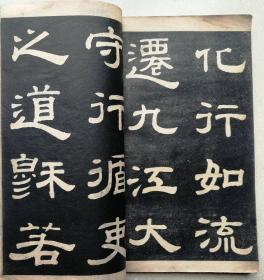 化行如流
遷九江大
守行循吏
之道䫉若